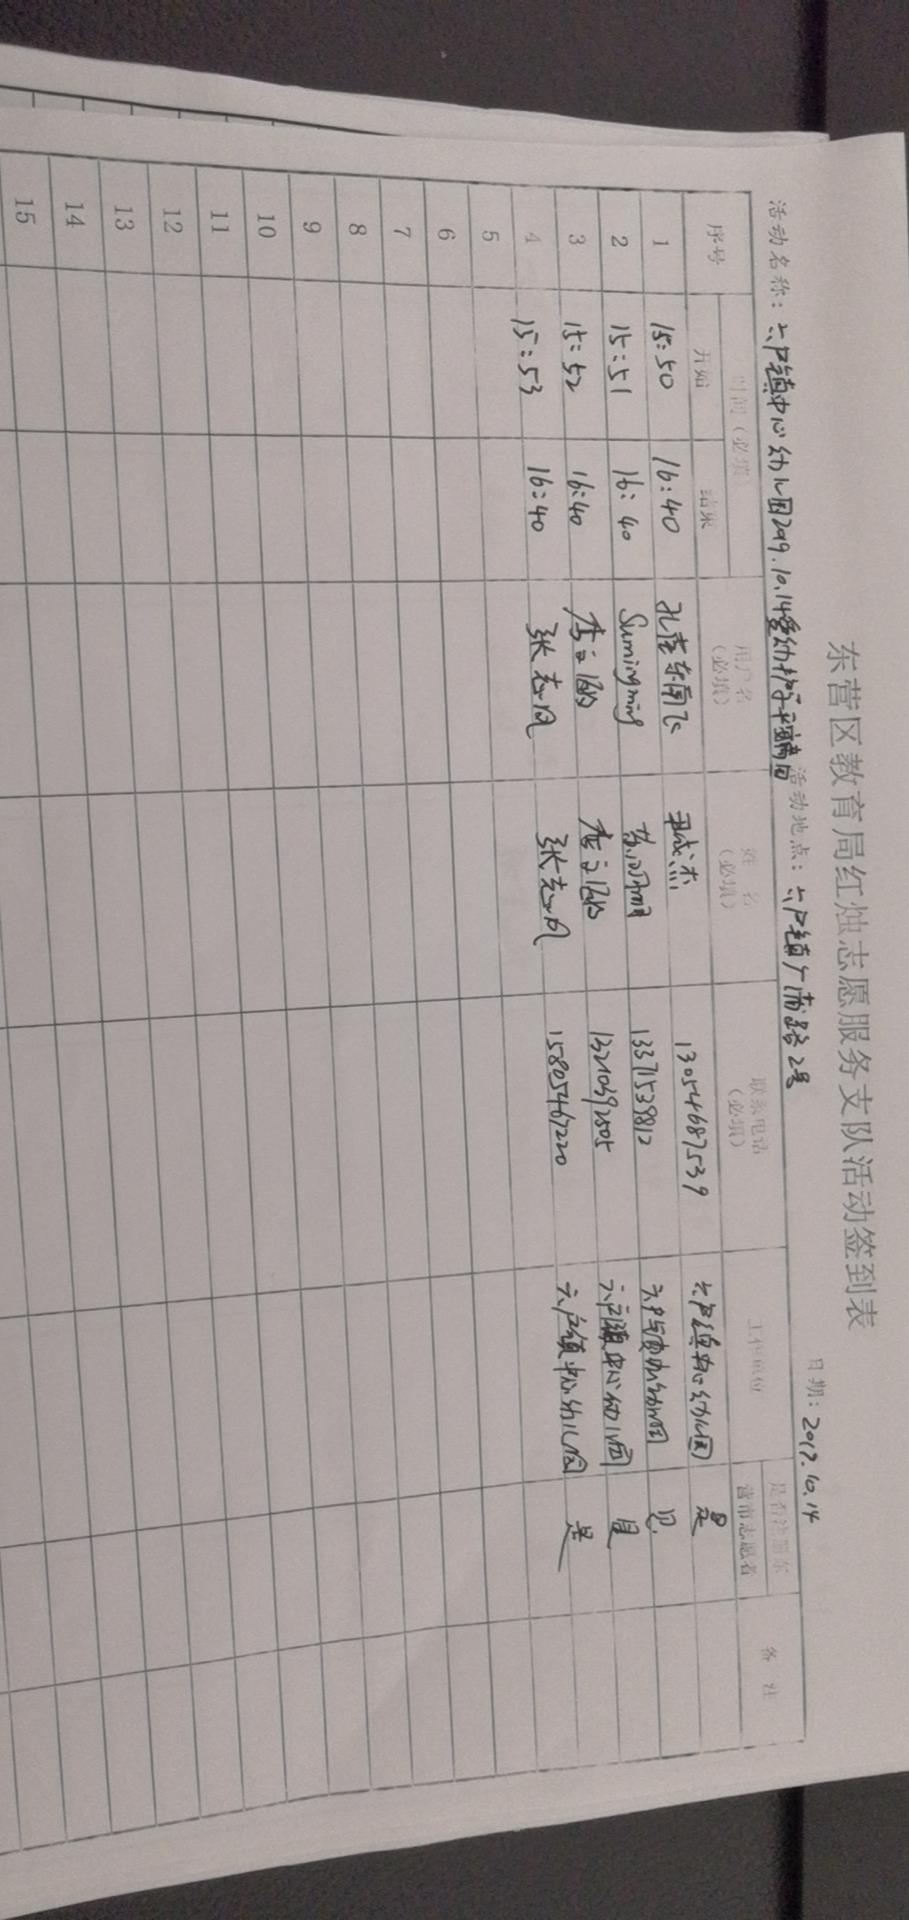 东营区教育局红烛志愿服务支队活动签到表
日期：2019.10.14
活动名称：六户镇中心幼儿园2019.10.14爱幼护学平安离园 活动地点：六户镇广蒲路2号
序号 时间（必填） 用户名（必填） 姓名（必填） 联系电话（必填） 工作单位 是否注册东营市志愿者 备注
开始 结束
1 15:50 16:40 孔雀东南飞 13054687539 六户镇中心幼儿园 是
2 15:51 16:40 Sumingming 13371539812 是
3 15:52 16:40 六户镇中心幼儿园 是
4 15:53 16:40 张志风 张志风 15805467220 六户镇中心幼儿园 是
5
6
7
8
9
10
11
12
13
14
15